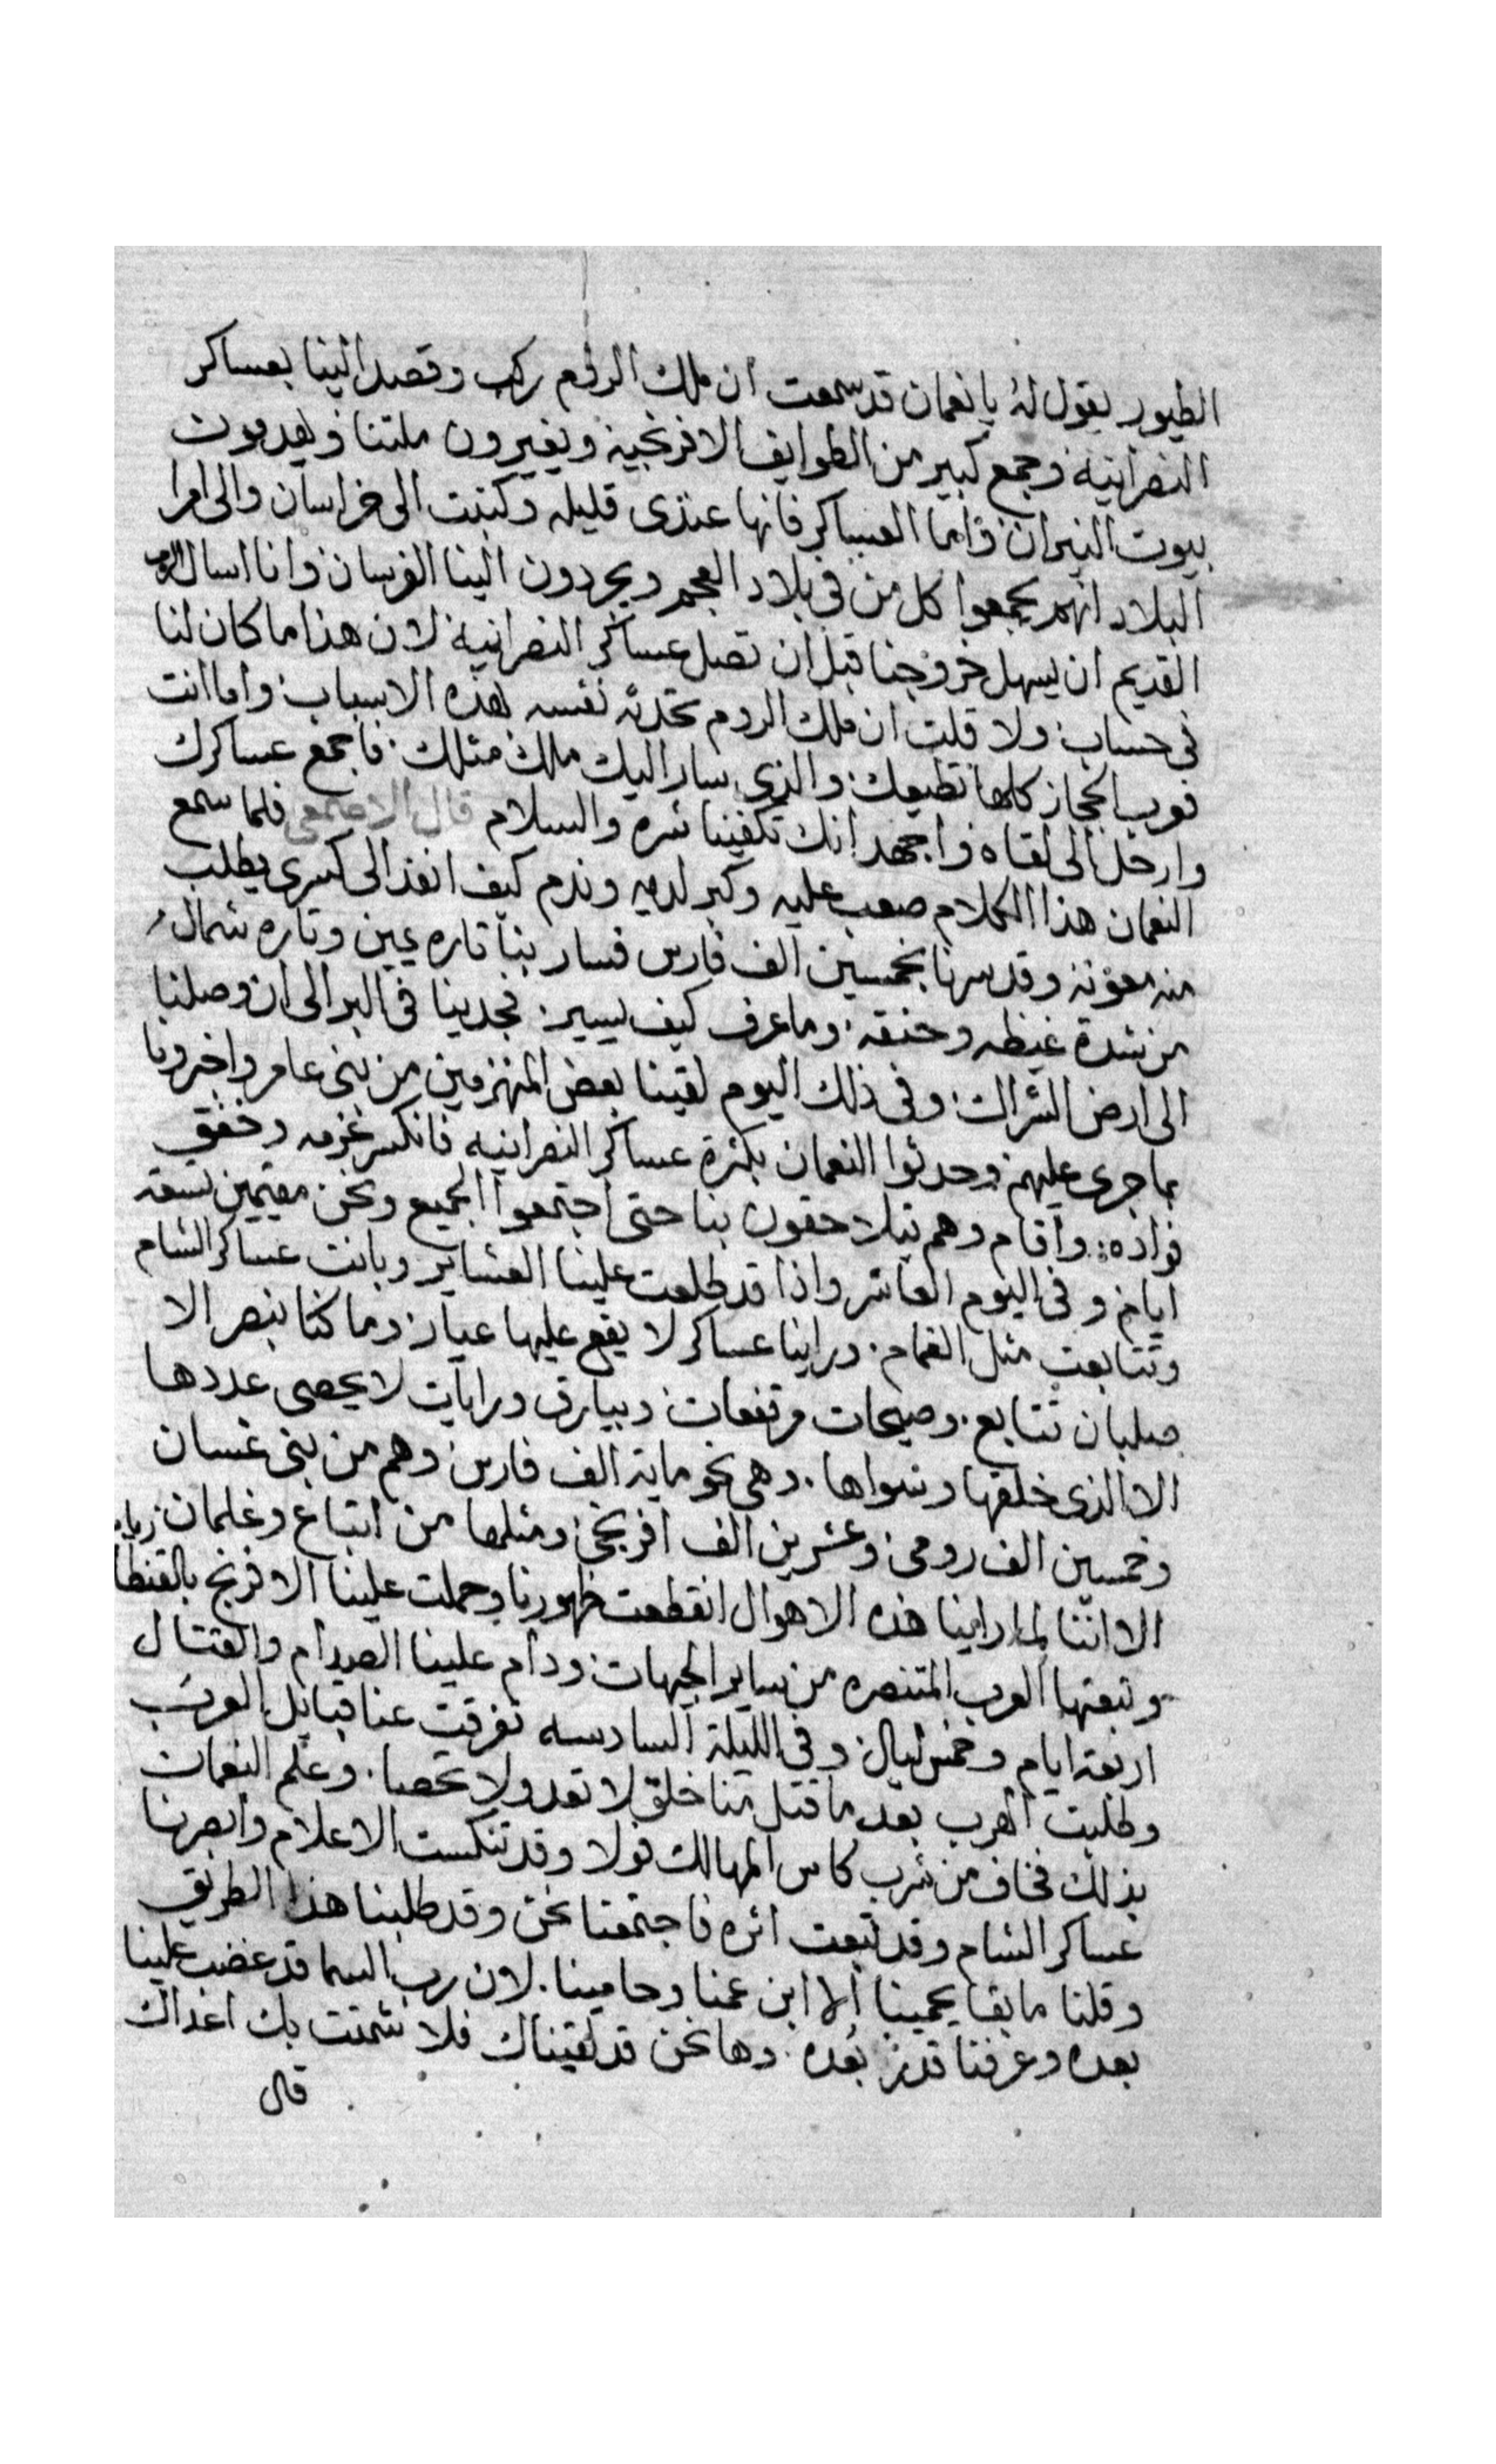 الطيور يقول له يا نعمان قد سمعت ان ملك الروم ركب وقصد الينا بعساكر
النصرانية وجمع كبير من الطوايف الافرنجية ويغيرون ملتنا ويهدمون
بيوت النيران واما العساكر فانها عندى قليله وكتبت الى خراسان والى امرا
البلاد انهم يجمعوا كل من فى بلاد العجم ويجردون الينا الفرسان وانا اسال الرب
القديم ان يسهل خروجنا قبل ان تصل عساكر النصرانية لان هذا ما كان لنا
فى حساب ولا قلت ان ملك الروم تحدثه نفسه بهذه الاسباب واما انت
فعرب الحجاز كلها تطيعك والذى سار اليك ملك مثلك فاجمع عساكرك
وارحل الى لقاه واجهد انك تكفينا شره والسلام قال الاصمعى فلما سمع
النعمان هذا الكلام صعب عليه وكبر لديه وندم كيف انفذ الى كسرى يطلب
منه معونه وقد سرنا بخمسين الف فارس فسار بنا تاره يمين وتاره شمال
من شدة غيظه وحنقه وما عرف كيف يسير فجدينا فى البر الى ان وصلنا
الى ارض الشراك وفى ذلك اليوم لقينا بعض المنهزمين من بنى عامر واخبرونا
بما جرى عليهم وحدثوا النعمان بكثرة عساكر النصرانيه فانكسر عزمه وخفق
فواده واقام وهم يتلاحقون بنا حتى اجتمعوا الجميع ونحن مقيمين تسعة
ايام وفى اليوم العاشر واذا قد طلعت علينا العشاير وبانت عساكر الشام
وتتابعت مثل الغمام وراينا عساكر لا يقع عليها عيار وما كنا ننصر الا
صلبان تتابع وصيحات مرتفعات وبيارق ورايات لا يحصى عددها
الا الذى خلقها وسواها وهى نحو ماية الف فارس وهم من بنى غسان
وخمسين الف رومى وعشرين الف افرنجى ومثلها من اتباع وغلمان
الا اننا لما راينا هذه الاهوال انقطعت ظهورنا وحملت علينا الافرنج
وتبعتها العرب المتنصره من ساير الجهات ودام علينا الصدام والقتال
اربعة ايام وخمس ليال وفى الليلة السادسه تفرقت عنا قبايل العرب
وطلبت الهرب بعد ما قتل منا خلق لا تعد ولا تحصا وعلم النعمان
بذلك فخاف من شرب كاس المهالك فولا وقد تنكست الاعلام وابصرنا
عساكر الشام وقد تبعت اثره فاجتمعنا نحن وقد طلبنا هذا الطريق
وقلنا ما بقا يحمينا الا ابن عمنا وحامينا لان رب السما قد غضب علينا
بعده وعرفنا قدر بعده وها نحن قد لقيناك فلا شمتت بك اعداك
قال